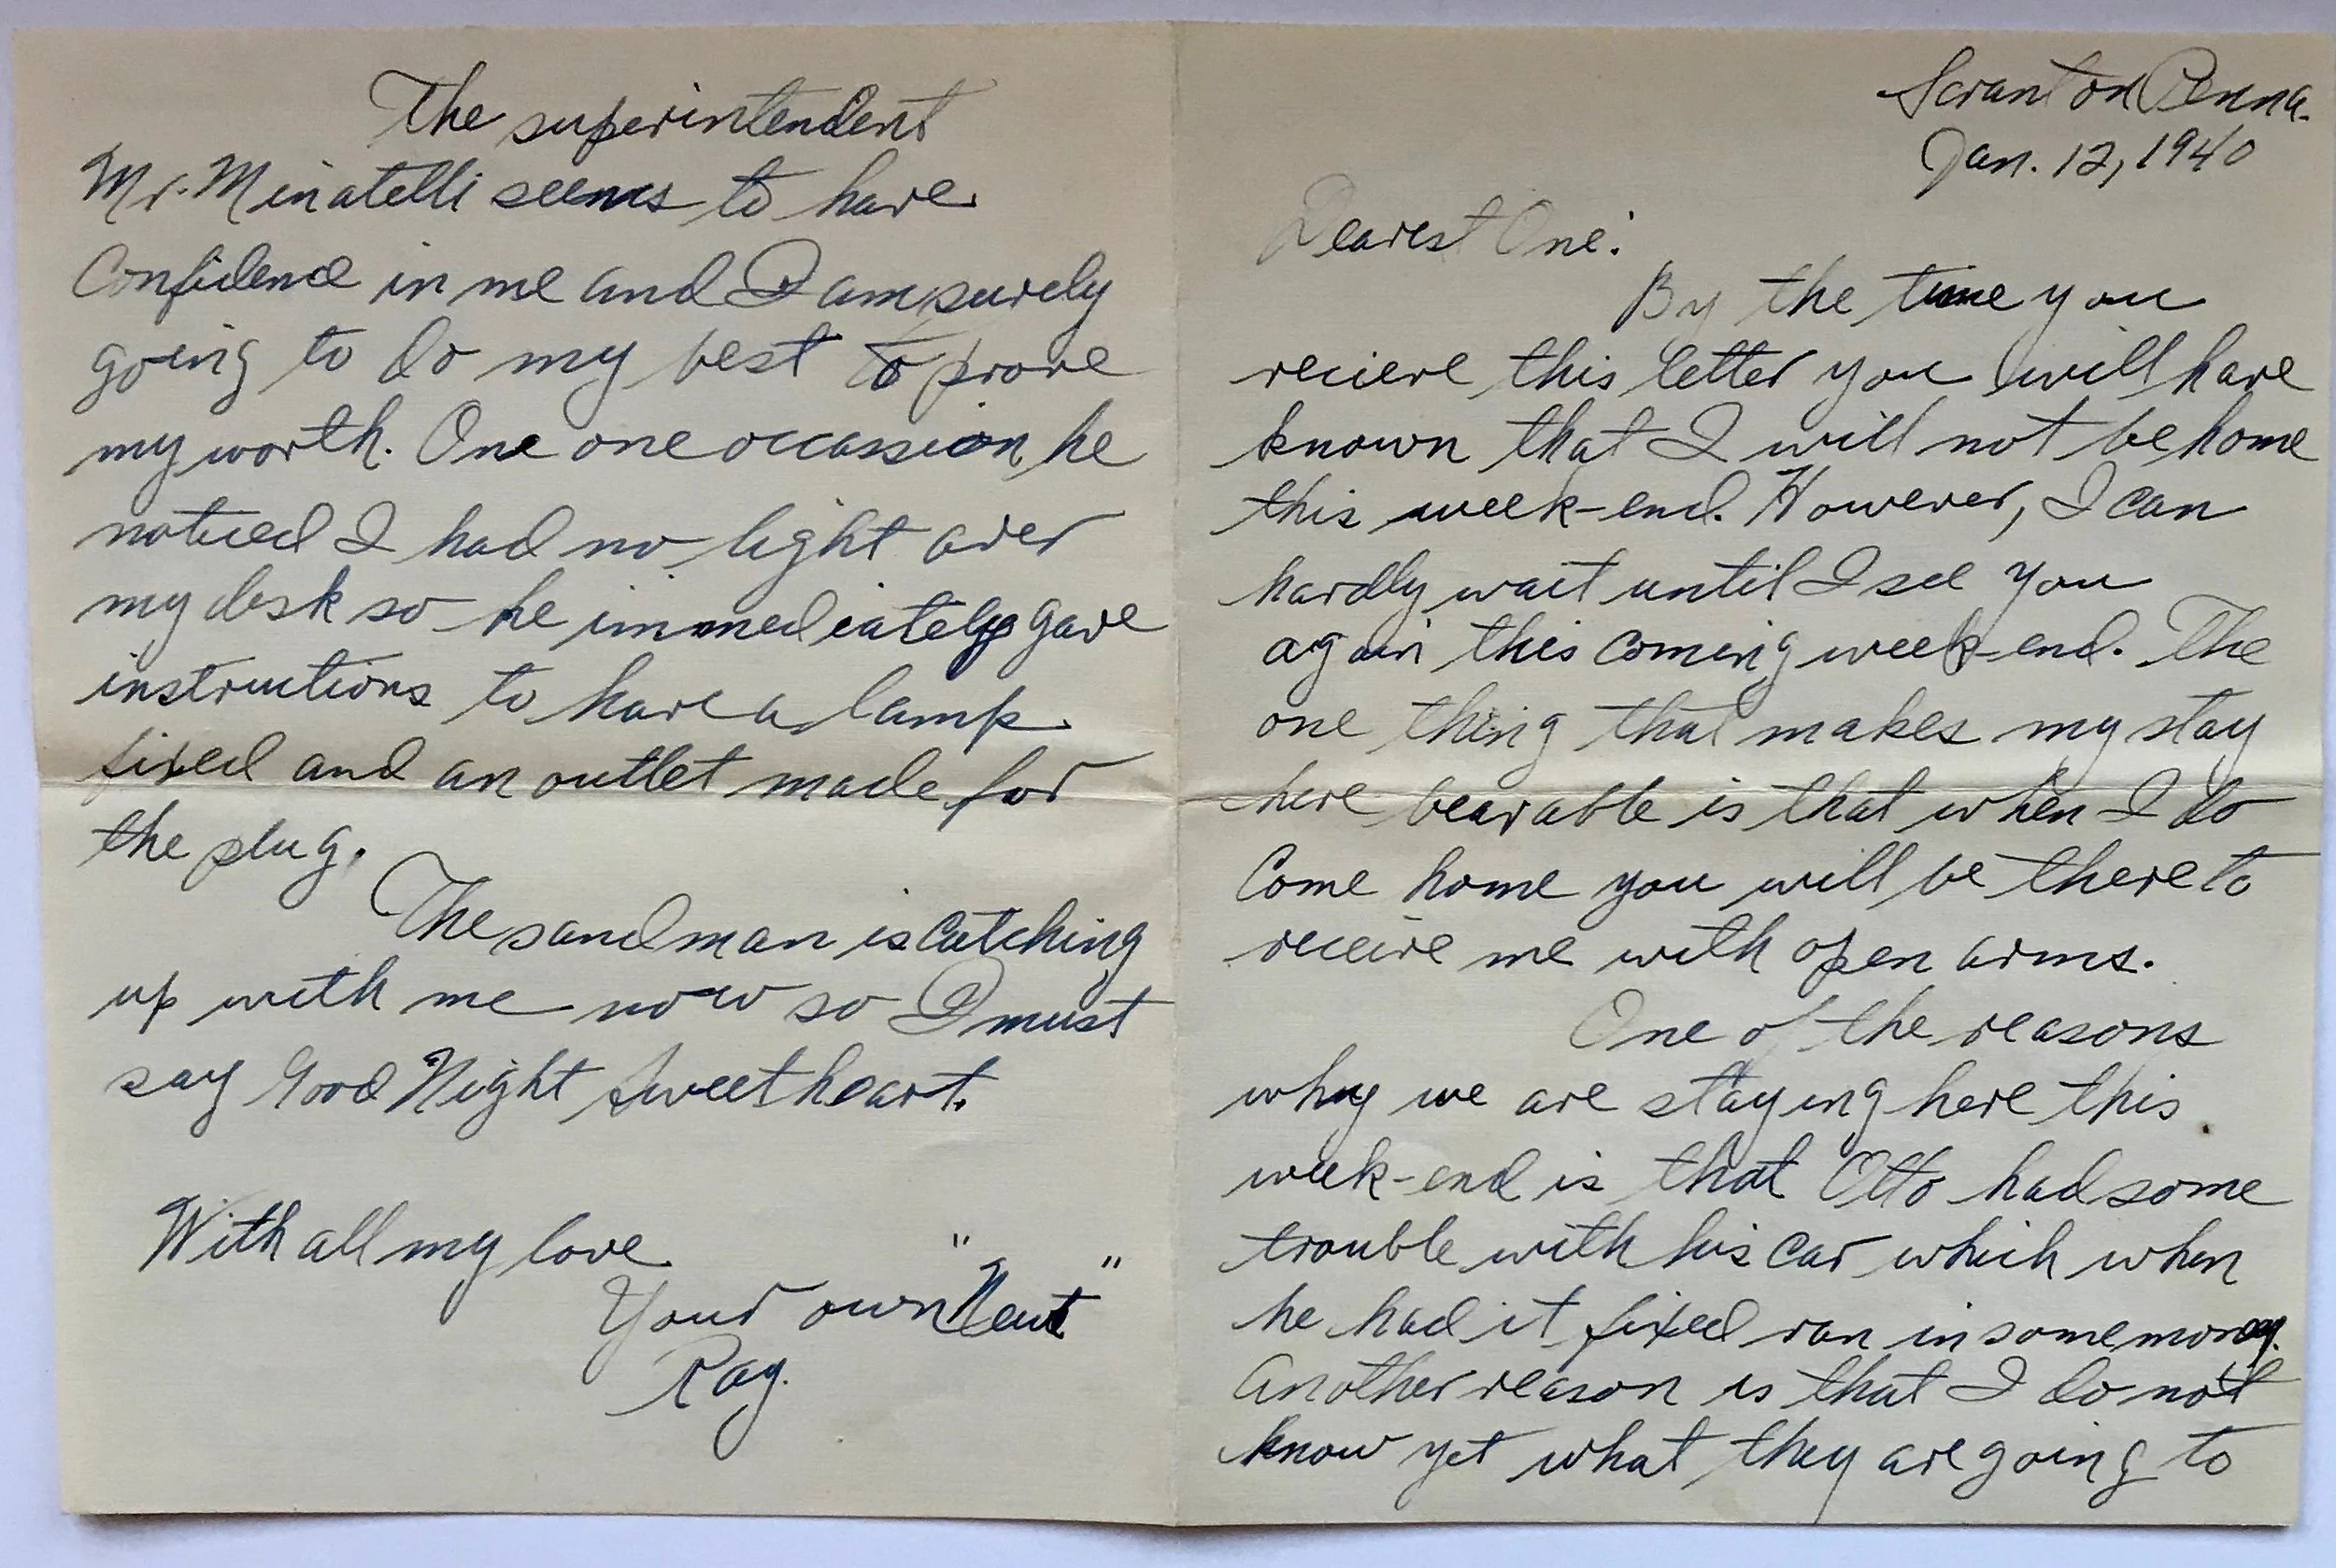 Scranton Penna.
Jan. 12, 1940
Dearest One:
By the time you
recieve this letter you will have
known that I will not be home
this week-end. However, I can
hardly wait until I see you
again this coming week-end. The
one thing that makes my stay
here bearable is that when I do
come home you will be there to
receive me with open arms.
One of the reasons
why we are staying here this
week-end is that Otto had some
trouble with his car which when
he had it fixed ran in some money.
Another reason is that I do not
know yet what they are going to
The superintendent
Mr. Minatelli seems to have
confidence in me and I am surely
going to do my best to prove
my worth. One one occassion, he
noticed I had no light over
my desk so he immediately gave
instructions to have a lamp
fixed and an outlet made for
the plug.
The sandman is catching
up with me now so I must
say Good Night Sweetheart.
With all my love
Your own "Neut"
Ray.